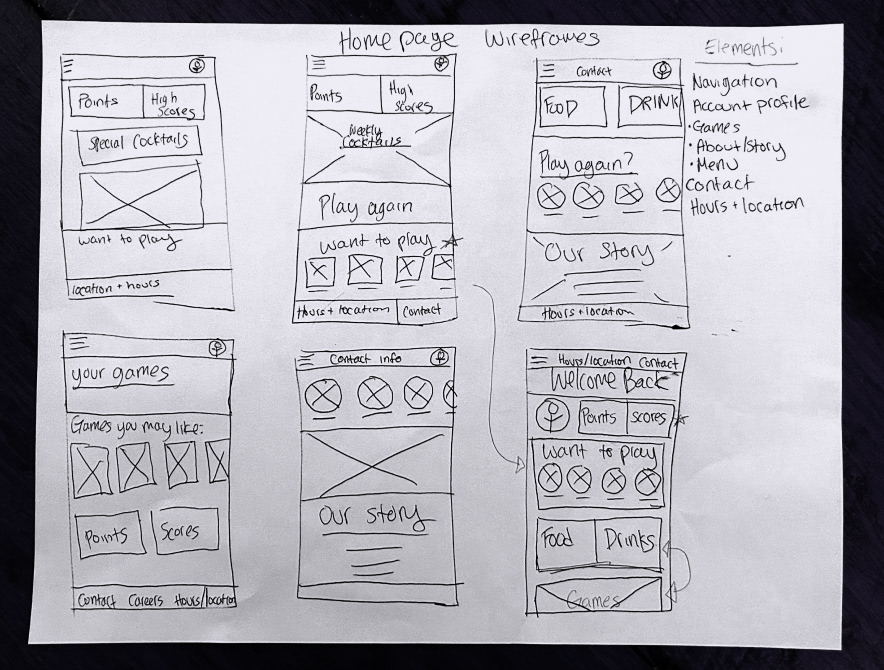 Home page Wireframes
Points
High Scores
Special Cocktails
want to play
location + hours
Points
High Scores
Weekly
Cocktails
Play again
want to play
Hours + location
Contact
Contact
FOOD
DRINK
Play again?
Our Story
Hours + location
Elements:
Navigation
Account profile
• Games
• About/Story
• Menu
Contact
Hours + location
your games
Games you may like:
Points
Scores
Contact Careers Hours/location
Contact info
Our story
Hours/location Contact
Welcome Back
Points
scores
want to play
Food
Drinks
Games